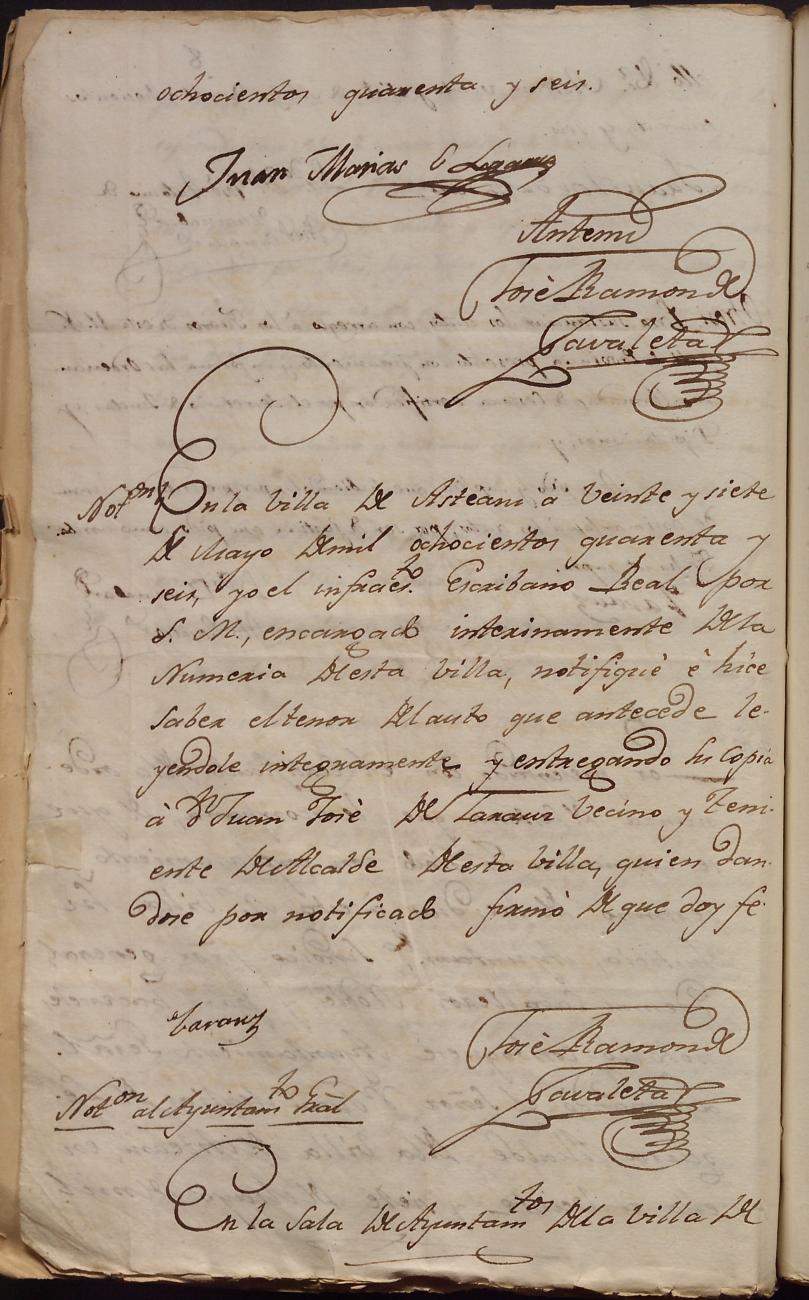 ochocientos quarenta y seis.
Juan Matias
Antemi
Josè Ramon de
Zavaleta
Not.on En la villa de Asteasu à veinte y siete
de Mayo de mil ochocientos quarenta y
seis, yo el infraes.to Escribano Real por
S. M., encargado interinamente de la
Numeria de esta villa, notifiquè è hice
saber el tenor del auto que antecede le-
yendole integramente y entregando su copia
à Dn Juan Josè de Zarauz vecino y Teni-
ente de Alcalde de esta villa, quien dan-
dose por notificado firmò de que doy fe.
Zarauz
Josè Ramon de
Zavaleta
Not.on al Ayuntam.to Gral
En la Sala de Ayuntam.tos de la villa de